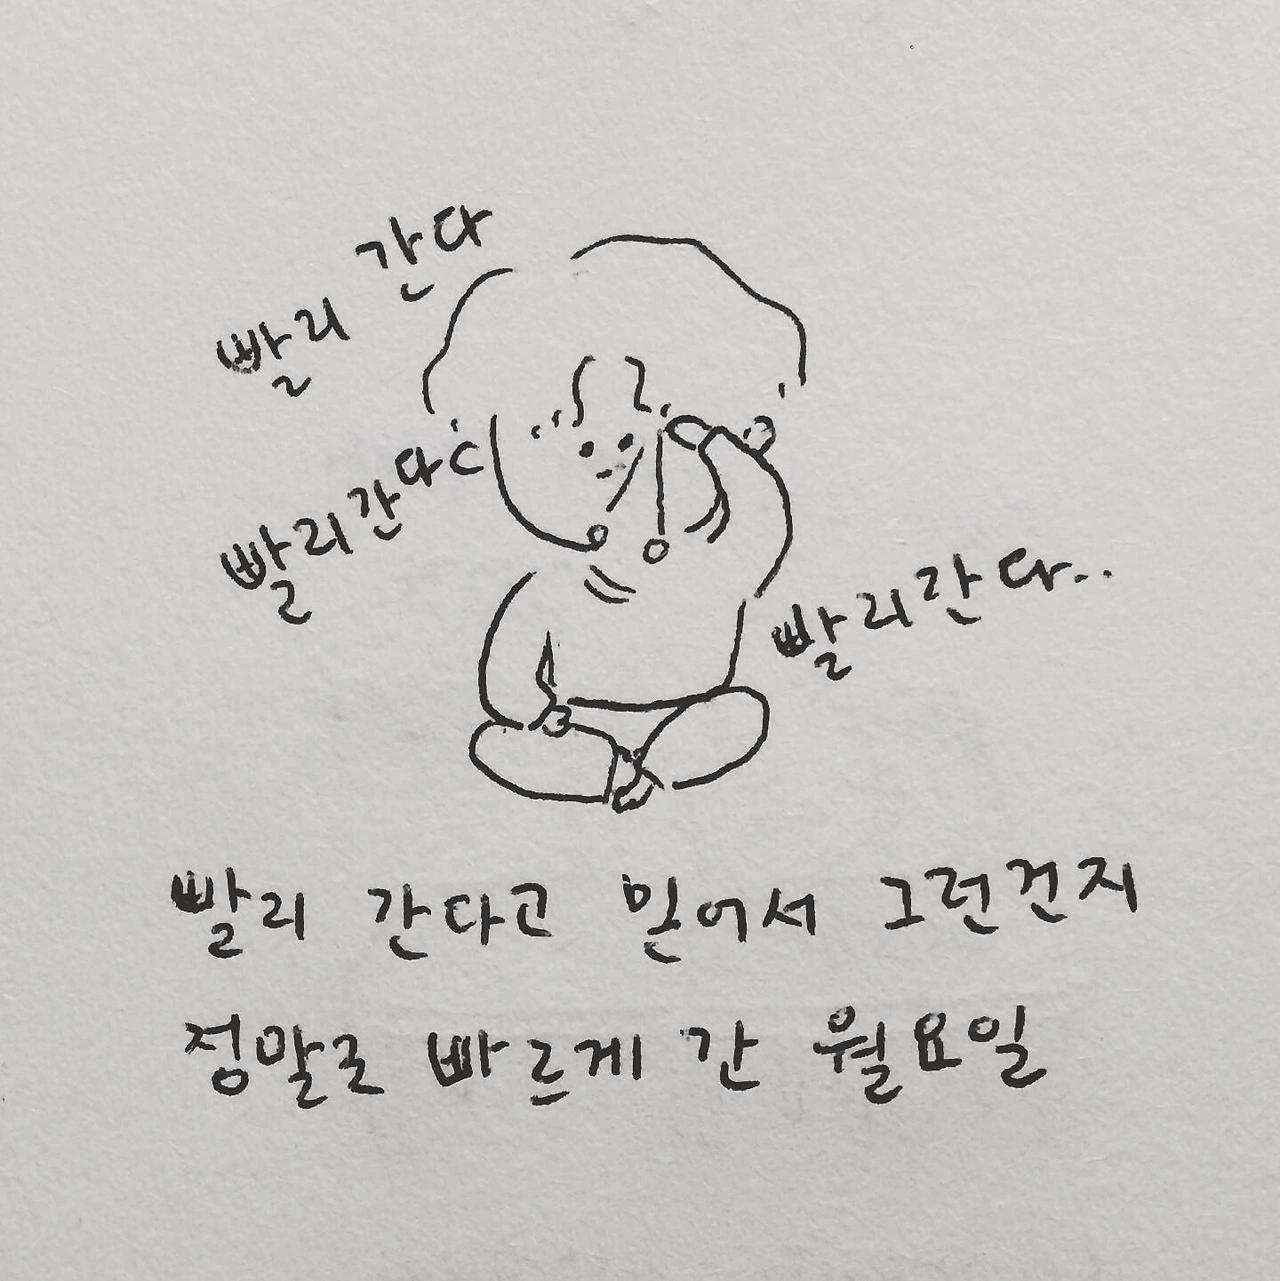 빨리 간다
빨리간다
빨리간다..
빨리 간다고 믿어서 그런건지
정말로 빠르게 간 월요일